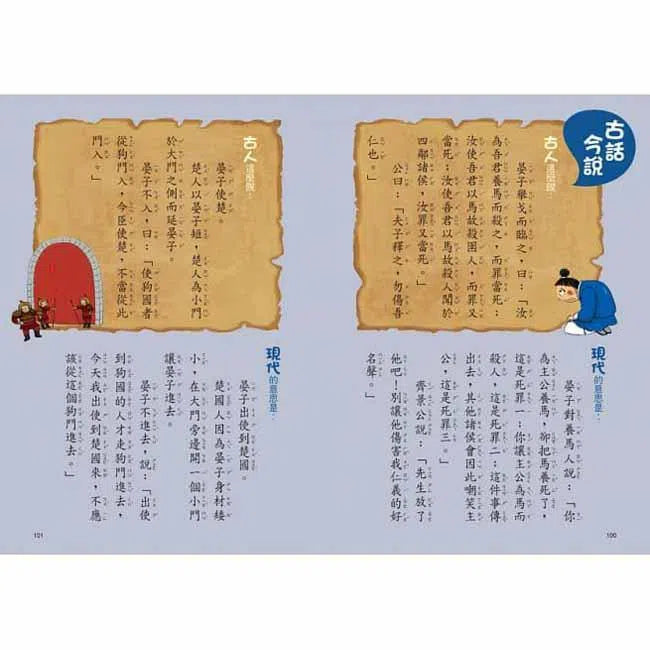 古話
今說
古人這麼說：
晏子舉戈而臨之，曰：「汝
為吾君養馬而殺之，而罪當死；
汝使吾君以馬故殺圉人，而罪又
當死；汝使吾君以馬故殺人聞於
四鄰諸侯，汝罪又當死。」
公曰：「夫子釋之，勿傷吾
仁也。」
現代的意思是：
晏子對養馬人說：「你
為主公養馬，卻把馬養死了，
這是死罪一；你讓主公為馬而
殺人，這是死罪二；這件事傳
出去，其他諸侯會因此嘲笑主
公，這是死罪三。」
齊景公說：「先生放了
他吧！別讓他傷害我仁義的好
名聲。」
100
古人這麼說：
晏子使楚。
楚人以晏子短，楚人為小門
於大門之側而延晏子。
晏子不入，曰：「使狗國者
從狗門入，今臣使楚，不當從此
門入。」
現代的意思是：
晏子出使到楚國。
楚國人因為晏子身材矮
小，在大門旁邊開一個小門
讓晏子進去。
晏子不進去，說：「出使
到狗國的人才走狗門進去，
今天我出使到楚國來，不應
該從這個狗門進去。」
101